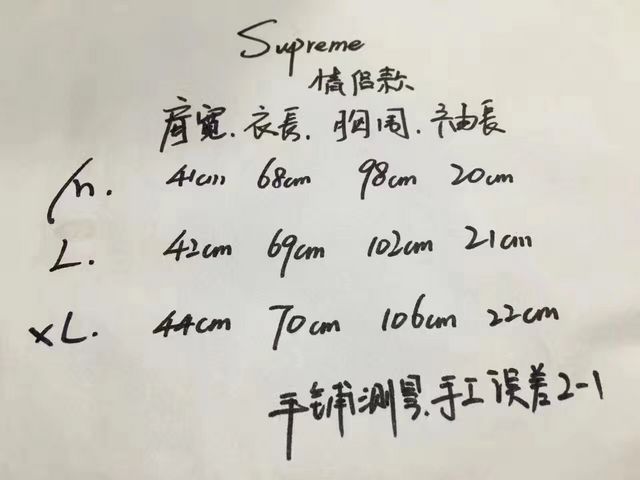 Supreme
情侣款
肩宽. 衣長. 胸围. 袖長
m. 41cm 68cm 98cm 20cm
L. 42cm 69cm 102cm 21cm
XL. 44cm 70cm 106cm 22cm
手铺测量. 手工误差2-1